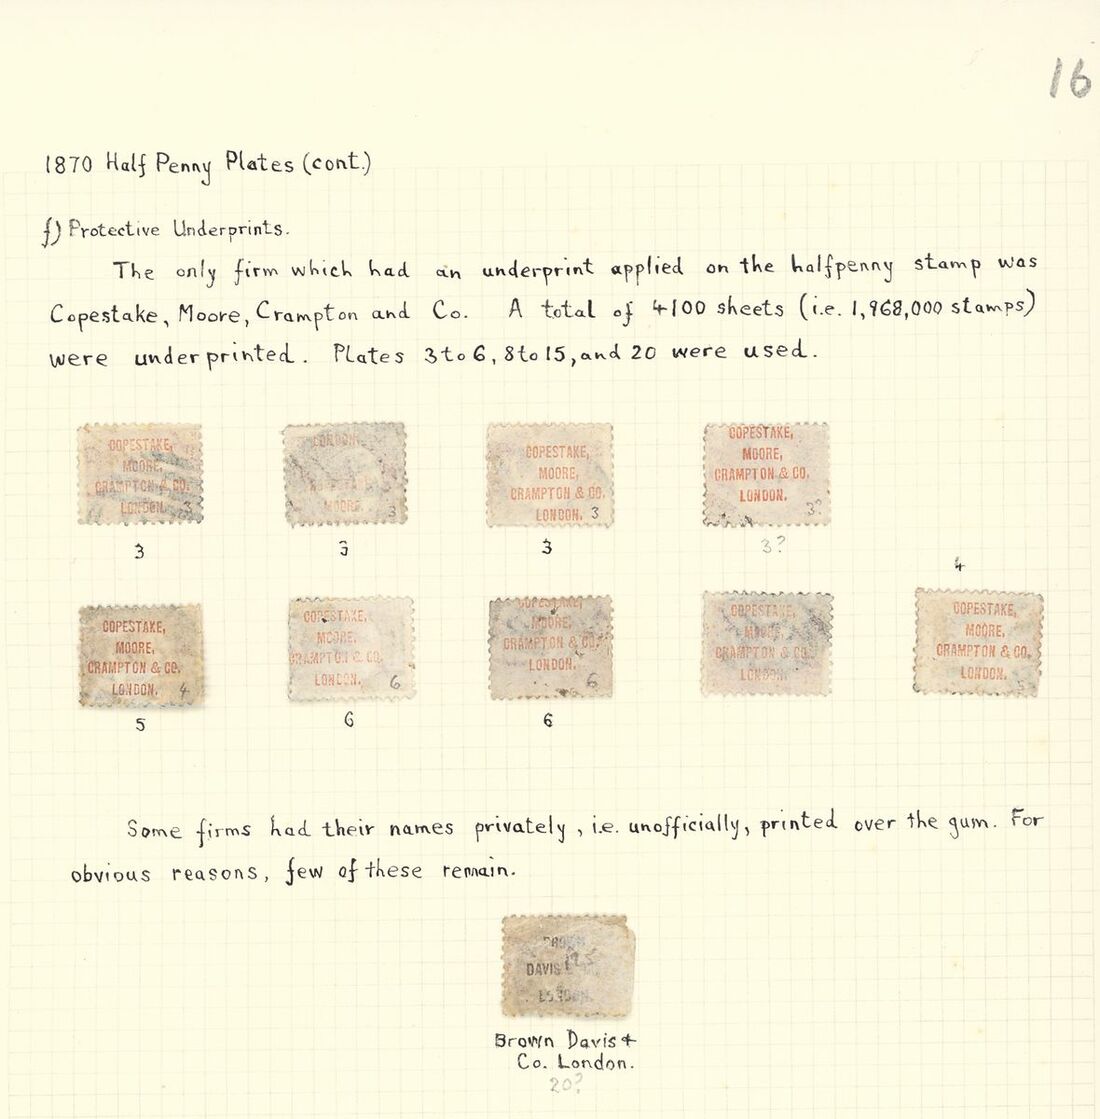 16
1870 Half Penny Plates (cont.)
f) Protective Underprints.
The only firm which had an underprint applied on the halfpenny stamp was
Copestake, Moore, Crampton and Co. A total of 4100 sheets (i.e. 1,968,000 stamps)
were underprinted. Plates 3 to 6, 8 to 15, and 20 were used.
COPESTAKE,
MOORE,
CRAMPTON & CO.
LONDON. 3
3
LONDON.
MOORE. 3
3
COPESTAKE,
MOORE,
CRAMPTON & CO.
LONDON. 3
3
COPESTAKE,
MOORE,
CRAMPTON & CO.
LONDON.
3?
3?
COPESTAKE,
MOORE,
CRAMPTON & CO.
LONDON. 4
5
COPESTAKE,
MOORE,
CRAMPTON & CO.
LONDON. 6
6
COPESTAKE,
MOORE,
CRAMPTON & CO.
LONDON.
6
6
COPESTAKE,
MOORE,
CRAMPTON & CO.
LONDON.
4
COPESTAKE,
MOORE,
CRAMPTON & CO.
LONDON.
Some firms had their names privately, i.e. unofficially, printed over the gum. For
obvious reasons, few of these remain.
BROWN
DAVIS
LONDON.
Brown Davis +
Co. London.
20?